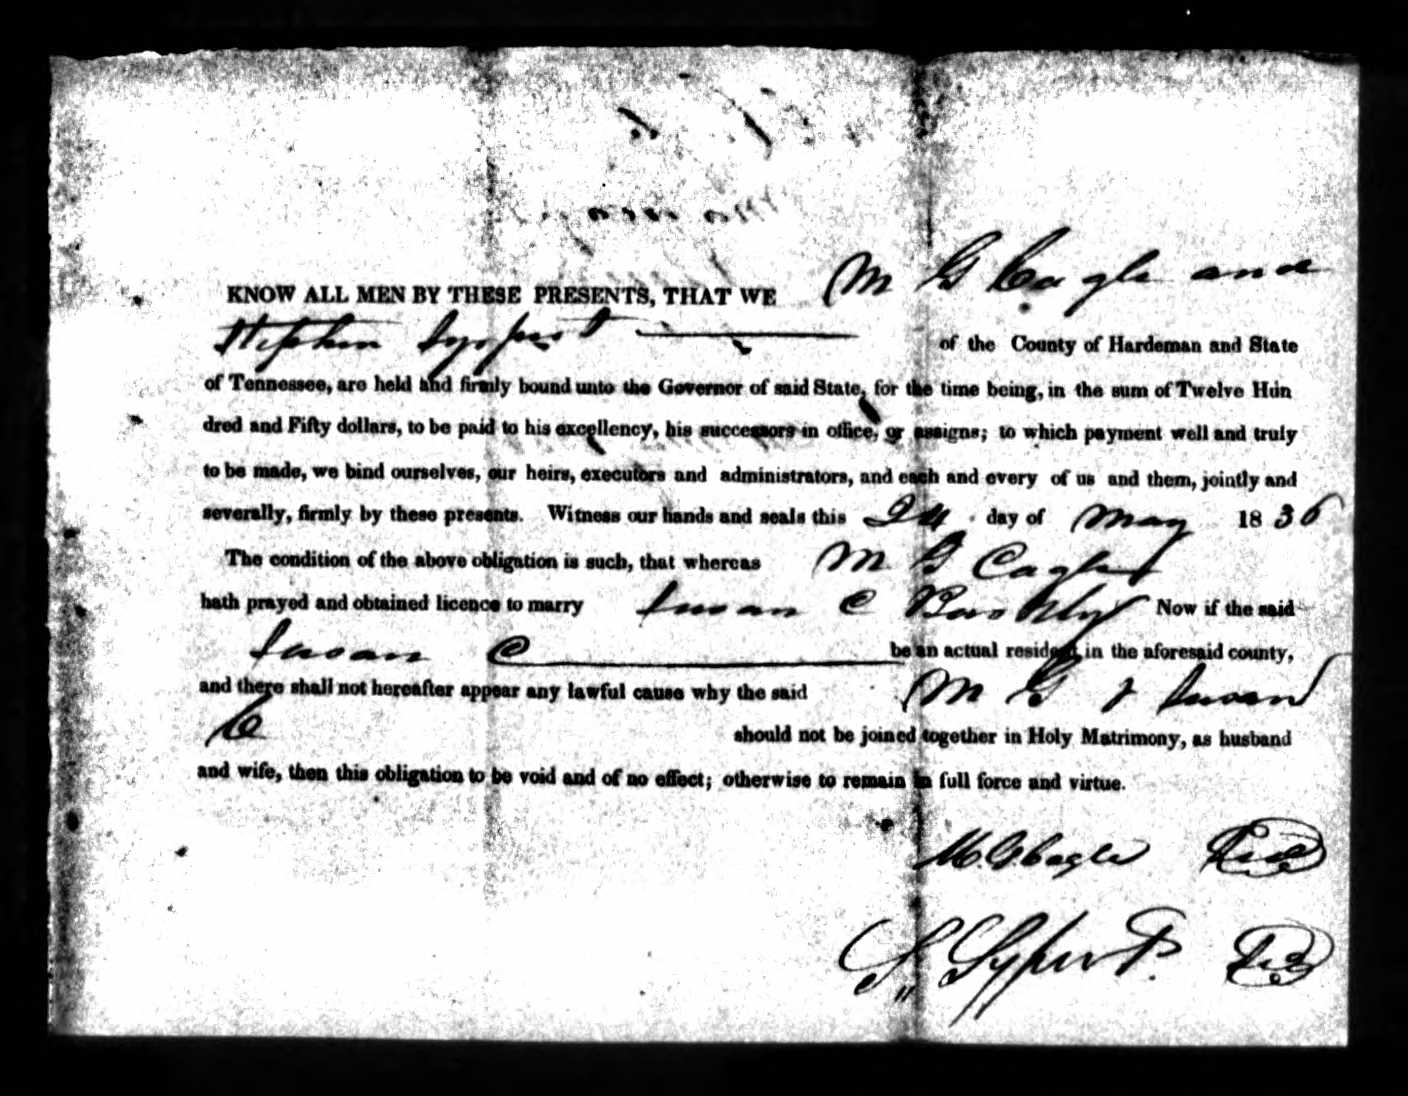 KNOW ALL MEN BY THESE PRESENTS, THAT WE M G Cagle and
Stephen Sypert of the County of Hardeman and State
of Tennessee, are held and firmly bound unto the Governor of said State, for the time being, in the sum of Twelve Hun
dred and Fifty dollars, to be paid to his excellency, his successors in office, or assigns; to which payment well and truly
to be made, we bind ourselves, our heirs, executors and administrators, and each and every of us and them, jointly and
severally, firmly by these presents. Witness our hands and seals this 24 day of May 1836
The condition of the above obligation is such, that whereas M G Cagle
hath prayed and obtained licence to marry Susan C Now if the said
Susan C be an actual resident in the aforesaid county,
and there shall not hereafter appear any lawful cause why the said M G & Susan
C should not be joined together in Holy Matrimony, as husband
and wife, then this obligation to be void and of no effect; otherwise to remain in full force and virtue.
M. G Cagle Seal
S. Sypert. Seal